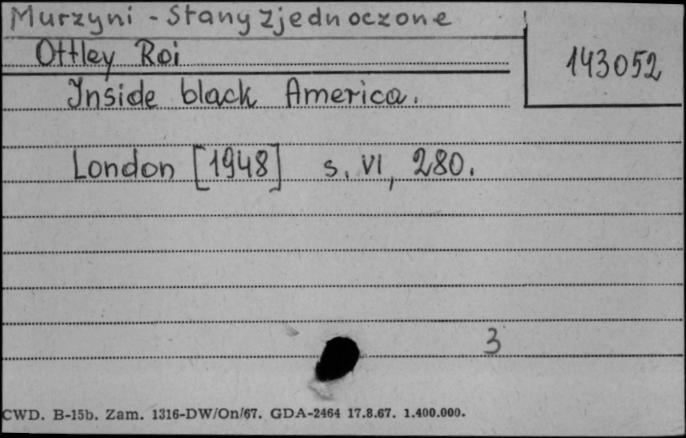 Murzyni - Stany Zjednoczone
Ottley Roi
143052
Inside black America.
London [1948] s. VI, 280.
3
CWD. B-15b. Zam. 1316-DW/On/67. GDA-2464 17.8.67. 1.400.000.